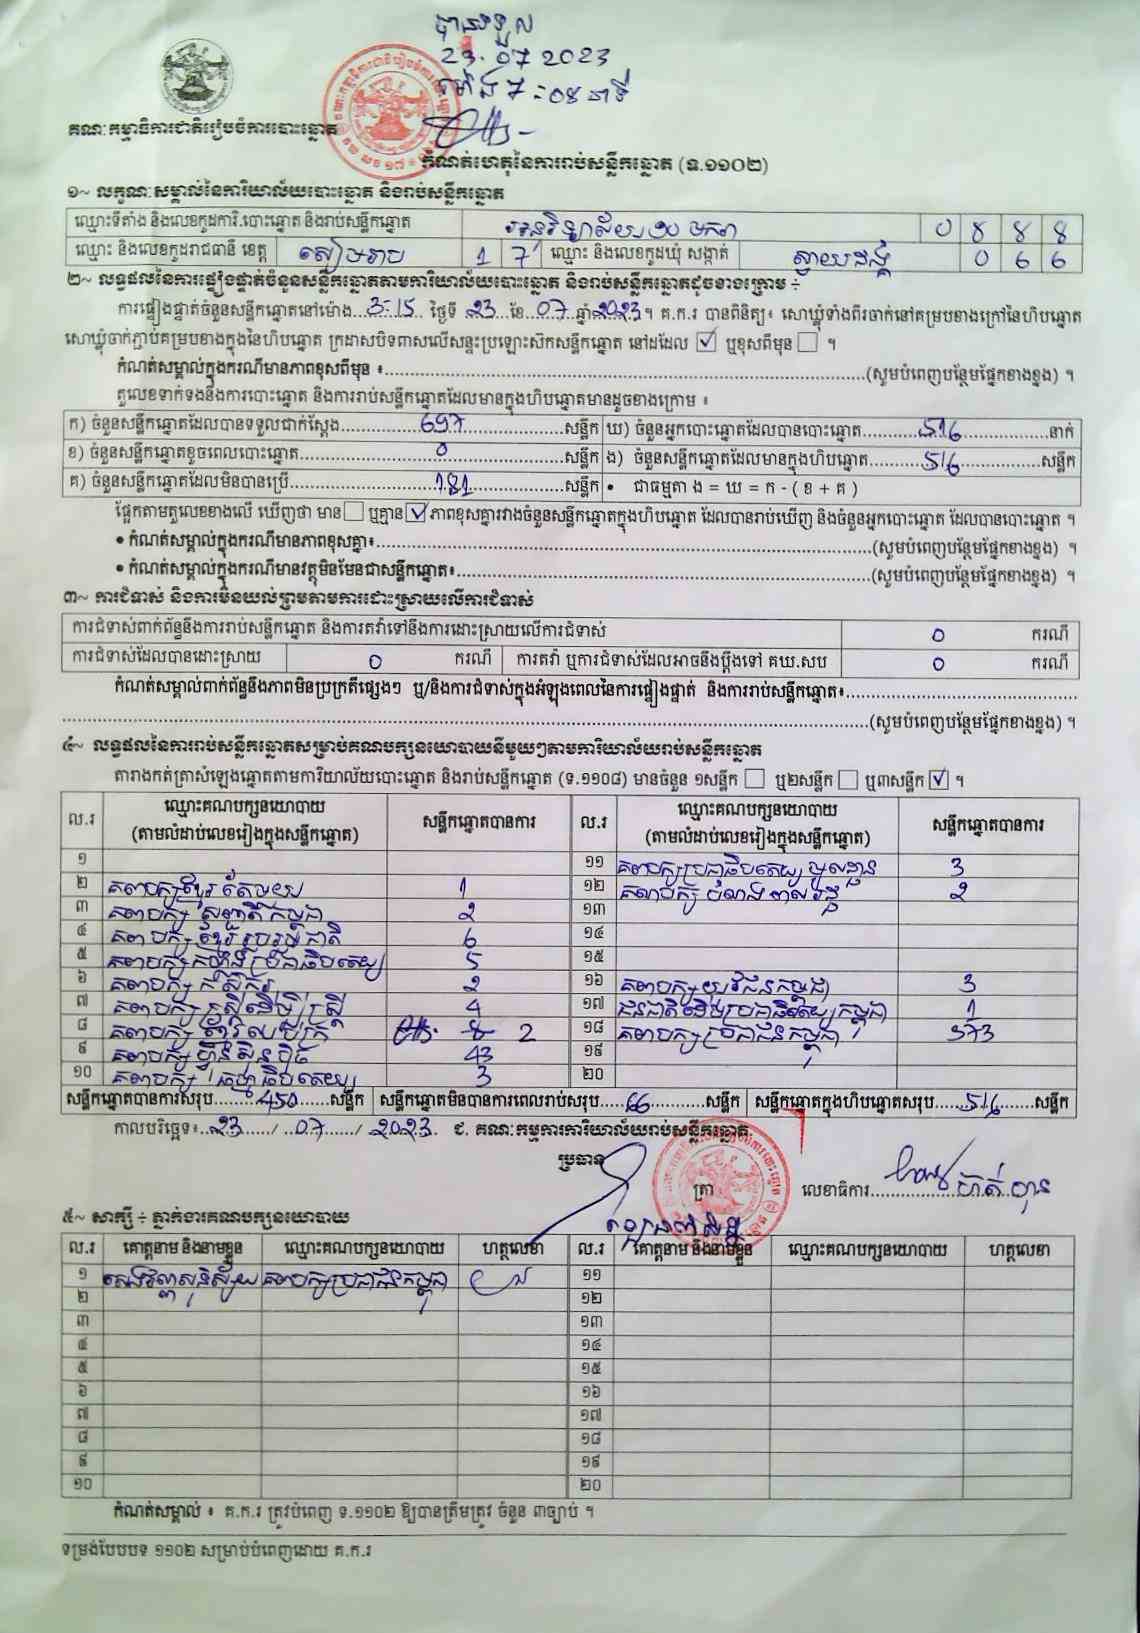 បានទទួល
23.07 2023
ម៉ោង 7:04 នាទី
គណៈកម្មាធិការជាតិរៀបចំការបោះឆ្នោត
កំណត់ហេតុនៃការរាប់សន្លឹកឆ្នោត (ទ.១១០២)
១~ លក្ខណៈសម្គាល់នៃការិយាល័យបោះឆ្នោត និងរាប់សន្លឹកឆ្នោត
ឈ្មោះទីតាំង និងលេខកូដការិ.បោះឆ្នោត និងរាប់សន្លឹកឆ្នោត អនុវិទ្យាល័យ ១០ មករា 0 8 8 8
ឈ្មោះ និងលេខកូដរាជធានី ខេត្ត សៀមរាប 1 7 ឈ្មោះ និងលេខកូដឃុំ សង្កាត់ ស្វាយដង្គំ 0 6 6
២~ លទ្ធផលនៃការផ្ទៀងផ្ទាត់ចំនួនសន្លឹកឆ្នោតតាមការិយាល័យបោះឆ្នោត និងរាប់សន្លឹកឆ្នោតដូចខាងក្រោម ÷
ការផ្ទៀងផ្ទាត់ចំនួនសន្លឹកឆ្នោតនៅម៉ោង 3-15 ថ្ងៃទី 23 ខែ 07 ឆ្នាំ 2023 ។ គ.ក.រ បានពិនិត្យ៖ សោឃ្លុំទាំងពីរចាក់នៅគម្របខាងក្រៅនៃហិបឆ្នោត
សោឃ្លុំចាក់ភ្ជាប់គម្របខាងក្នុងនៃហិបឆ្នោត ក្រដាសបិទពាសលើសន្ទះប្រឡោះស៊កសន្លឹកឆ្នោត នៅដដែល ✓ ឬខុសពីមុន ។
កំណត់សម្គាល់ក្នុងករណីមានភាពខុសពីមុន ៖ (សូមបំពេញបន្ថែមផ្នែកខាងខ្នង) ។
តួលេខទាក់ទងនឹងការបោះឆ្នោត និងការរាប់សន្លឹកឆ្នោតដែលមានក្នុងហិបឆ្នោតមានដូចខាងក្រោម ៖
ក) ចំនួនសន្លឹកឆ្នោតដែលបានទទួលជាក់ស្តែង 697 សន្លឹក ឃ) ចំនួនអ្នកបោះឆ្នោតដែលបានបោះឆ្នោត 516 នាក់
ខ) ចំនួនសន្លឹកឆ្នោតខូចពេលបោះឆ្នោត 0 សន្លឹក ង) ចំនួនសន្លឹកឆ្នោតដែលមានក្នុងហិបឆ្នោត 516 សន្លឹក
គ) ចំនួនសន្លឹកឆ្នោតដែលមិនបានប្រើ 181 សន្លឹក • ជាធម្មតា ង = ឃ = ក - ( ខ + គ )
ផ្អែកតាមតួលេខខាងលើ ឃើញថា មាន ឬគ្មាន ✓ ភាពខុសគ្នារវាងចំនួនសន្លឹកឆ្នោតក្នុងហិបឆ្នោត ដែលបានរាប់ឃើញ និងចំនួនអ្នកបោះឆ្នោត ដែលបានបោះឆ្នោត ។
• កំណត់សម្គាល់ក្នុងករណីមានភាពខុសគ្នា៖ (សូមបំពេញបន្ថែមផ្នែកខាងខ្នង) ។
• កំណត់សម្គាល់ក្នុងករណីមានវត្ថុមិនមែនជាសន្លឹកឆ្នោត៖ (សូមបំពេញបន្ថែមផ្នែកខាងខ្នង) ។
៣~ ការជំទាស់ និងការមិនយល់ព្រមតាមការដោះស្រាយលើការជំទាស់
ការជំទាស់ពាក់ព័ន្ធនឹងការរាប់សន្លឹកឆ្នោត និងការតវ៉ាទៅនឹងការដោះស្រាយលើការជំទាស់ 0 ករណី
ការជំទាស់ដែលបានដោះស្រាយ 0 ករណី ការតវ៉ា ឬការជំទាស់ដែលអាចនឹងប្តឹងទៅ គឃ.សប 0 ករណី
កំណត់សម្គាល់ពាក់ព័ន្ធនឹងភាពមិនប្រក្រតីផ្សេងៗ ឬ/និងការជំទាស់ក្នុងអំឡុងពេលនៃការផ្ទៀងផ្ទាត់ និងការរាប់សន្លឹកឆ្នោត៖
(សូមបំពេញបន្ថែមផ្នែកខាងខ្នង) ។
៤~ លទ្ធផលនៃការរាប់សន្លឹកឆ្នោតសម្រាប់គណបក្សនយោបាយនីមួយៗតាមការិយាល័យរាប់សន្លឹកឆ្នោត
តារាងកត់ត្រាសំឡេងឆ្នោតតាមការិយាល័យបោះឆ្នោត និងរាប់សន្លឹកឆ្នោត (ទ.១១០៨) មានចំនួន ១សន្លឹក ឬ២សន្លឹក ឬ៣សន្លឹក ✓ ។
ល.រ ឈ្មោះគណបក្សនយោបាយ (តាមលំដាប់លេខរៀងក្នុងសន្លឹកឆ្នោត) សន្លឹកឆ្នោតបានការ ល.រ ឈ្មោះគណបក្សនយោបាយ (តាមលំដាប់លេខរៀងក្នុងសន្លឹកឆ្នោត) សន្លឹកឆ្នោតបានការ
១ ១១ គណបក្សប្រជាធិបតេយ្យមូលដ្ឋាន 3
២ គណបក្សខ្មែរតែមួយ 1 ១២ គណបក្ស 2
៣ គណបក្ស សញ្ជាតិកម្ពុជា 2 ១៣
៤ គណបក្ស ខ្មែររួបរួមជាតិ 6 ១៤
៥ គណបក្សកម្លាំងប្រជាធិបតេយ្យ 5 ១៥
៦ គណបក្ស កសិករ 2 ១៦ គណបក្សយុវជនកម្ពុជា 3
៧ គណបក្ស ស្ត្រីដើម្បីស្ត្រី 4 ១៧ ជនជាតិដើមប្រជាធិបតេយ្យកម្ពុជា 1
៨ គណបក្ស 2 ១៨ គណបក្សប្រជាជនកម្ពុជា 373
៩ គណបក្ស ហ៊្វុនស៊ិនប៉ិច 43 ១៩
១០ គណបក្ស ធម្មាធិបតេយ្យ 3 ២០
សន្លឹកឆ្នោតបានការសរុប 450 សន្លឹក សន្លឹកឆ្នោតមិនបានការពេលរាប់សរុប 66 សន្លឹក សន្លឹកឆ្នោតក្នុងហិបឆ្នោតសរុប 516 សន្លឹក
កាលបរិច្ឆេទ៖ 23 / 07 / 2023 ជ. គណៈកម្មការការិយាល័យរាប់សន្លឹកឆ្នោត
ប្រធាន ត្រា លេខាធិការ
៥~ សាក្សី ÷ ភ្នាក់ងារគណបក្សនយោបាយ
ល.រ គោត្តនាម និងនាមខ្លួន ឈ្មោះគណបក្សនយោបាយ ហត្ថលេខា ល.រ គោត្តនាម និងនាមខ្លួន ឈ្មោះគណបក្សនយោបាយ ហត្ថលេខា
១ គណបក្សប្រជាជនកម្ពុជា ១១
២ ១២
៣ ១៣
៤ ១៤
៥ ១៥
៦ ១៦
៧ ១៧
៨ ១៨
៩ ១៩
១០ ២០
កំណត់សម្គាល់ ៖ គ.ក.រ ត្រូវបំពេញ ទ.១១០២ ឱ្យបានត្រឹមត្រូវ ចំនួន ៣ច្បាប់ ។
ទម្រង់បែបបទ ១១០២ សម្រាប់បំពេញដោយ គ.ក.រ